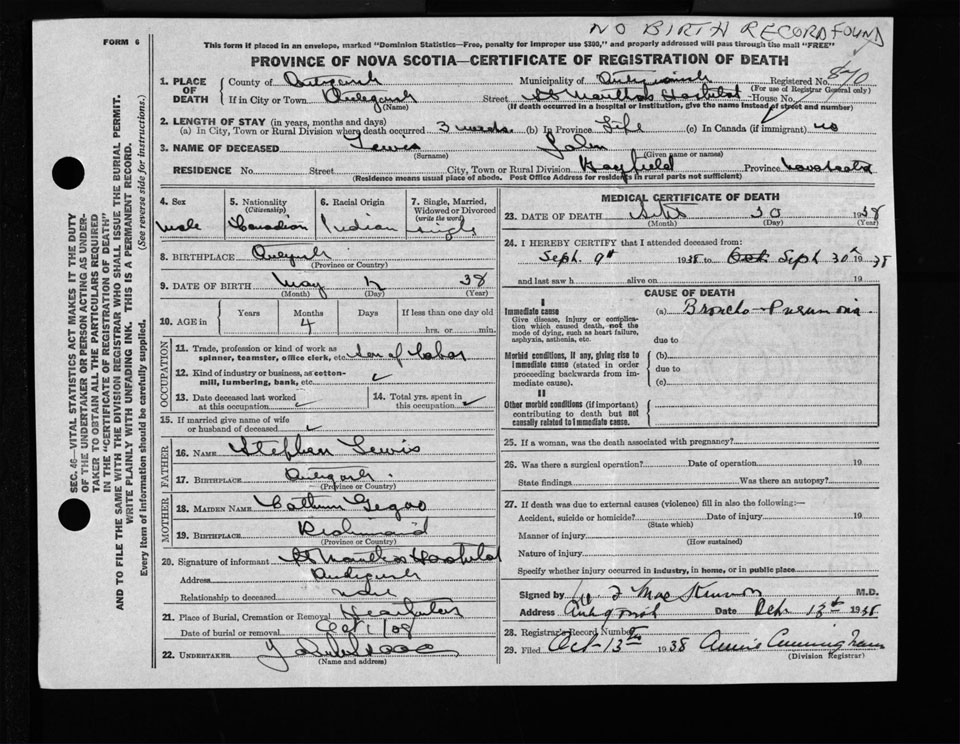 NO BIRTH RECORD FOUND
FORM 6
This form if placed in an envelope, marked "Dominion Statistics—Free, penalty for improper use $300," and properly addressed will pass through the mail "FREE"
PROVINCE OF NOVA SCOTIA—CERTIFICATE OF REGISTRATION OF DEATH
1. PLACE OF DEATH
County of Antigonish Municipality of Antigonish Registered No. 870
(For use of Registrar General only)
If in City or Town Antigonish Street St Martha's Hospital House No.
(Name) (If death occurred in a hospital or institution, give the name instead of street and number)
2. LENGTH OF STAY (in years, months and days)
(a) In City, Town or Rural Division where death occurred 3 weeks (b) In Province Life (c) In Canada (if immigrant) no
3. NAME OF DECEASED Lewis John
(Surname) (Given name or names)
RESIDENCE No. Street City, Town or Rural Division Bayfield Province Nova Scotia
(Residence means usual place of abode. Post Office Address for residents in rural parts not sufficient)
4. Sex
male
5. Nationality
(Citizenship)
Canadian
6. Racial Origin
Indian
7. Single, Married, Widowed or Divorced
(write the word)
single
8. BIRTHPLACE Antigonish
(Province or Country)
9. DATE OF BIRTH May 38
(Month) (Day) (Year)
10. AGE in
Years Months Days If less than one day old
4 hrs. or min.
OCCUPATION
11. Trade, profession or kind of work as
spinner, teamster, office clerk, etc. son of labor
12. Kind of industry or business, as cotton-
mill, lumbering, bank, etc.
13. Date deceased last worked
at this occupation
14. Total yrs. spent in
this occupation
15. If married give name of wife
or husband of deceased
FATHER
16. NAME Stephen Lewis
17. BIRTHPLACE Antigonish
(Province or Country)
MOTHER
18. MAIDEN NAME
19. BIRTHPLACE Richmond
(Province or Country)
20. Signature of informant St Martha's Hospital
Address Antigonish
Relationship to deceased
21. Place of Burial, Cremation or Removal
Date of burial or removal Oct 1
22. UNDERTAKER
(Name and address)
MEDICAL CERTIFICATE OF DEATH
23. DATE OF DEATH 30 1938
(Month) (Day) (Year)
24. I HEREBY CERTIFY that I attended deceased from:
Sept. 9th 1938 to Sept 30th 1938
and last saw h alive on 19
CAUSE OF DEATH
I
Immediate cause
Give disease, injury or complica-
tion which caused death, not the
mode of dying, such as heart failure,
asphyxia, asthenia, etc.
(a) Broncho-Pneumonia
due to
Morbid conditions, if any, giving rise to
immediate cause (stated in order
proceeding backwards from im-
mediate cause).
(b)
due to
(c)
II
Other morbid conditions (if important)
contributing to death but not
causally related to immediate cause.
25. If a woman, was the death associated with pregnancy?
26. Was there a surgical operation? Date of operation 19
State findings Was there an autopsy?
27. If death was due to external causes (violence) fill in also the following:—
Accident, suicide or homicide? Date of injury 19
(State which)
Manner of injury
(How sustained)
Nature of injury
Specify whether injury occurred in industry, in home, or in public place
Signed by MacKinnon M.D.
Address Antigonish Date Oct 13th 1938
28. Registrar's Record Number
29. Filed Oct 13th 1938 Annie Cunningham
(Division Registrar)
SEC. 46—VITAL STATISTICS ACT MAKES IT THE DUTY
OF THE UNDERTAKER OR PERSON ACTING AS UNDER-
TAKER TO OBTAIN ALL THE PARTICULARS REQUIRED
IN THE "CERTIFICATE OF REGISTRATION OF DEATH"
AND TO FILE THE SAME WITH THE DIVISION REGISTRAR WHO SHALL ISSUE THE BURIAL PERMIT.
WRITE PLAINLY WITH UNFADING INK. THIS IS A PERMANENT RECORD.
Every item of information should be carefully supplied. (See reverse side for instructions.)